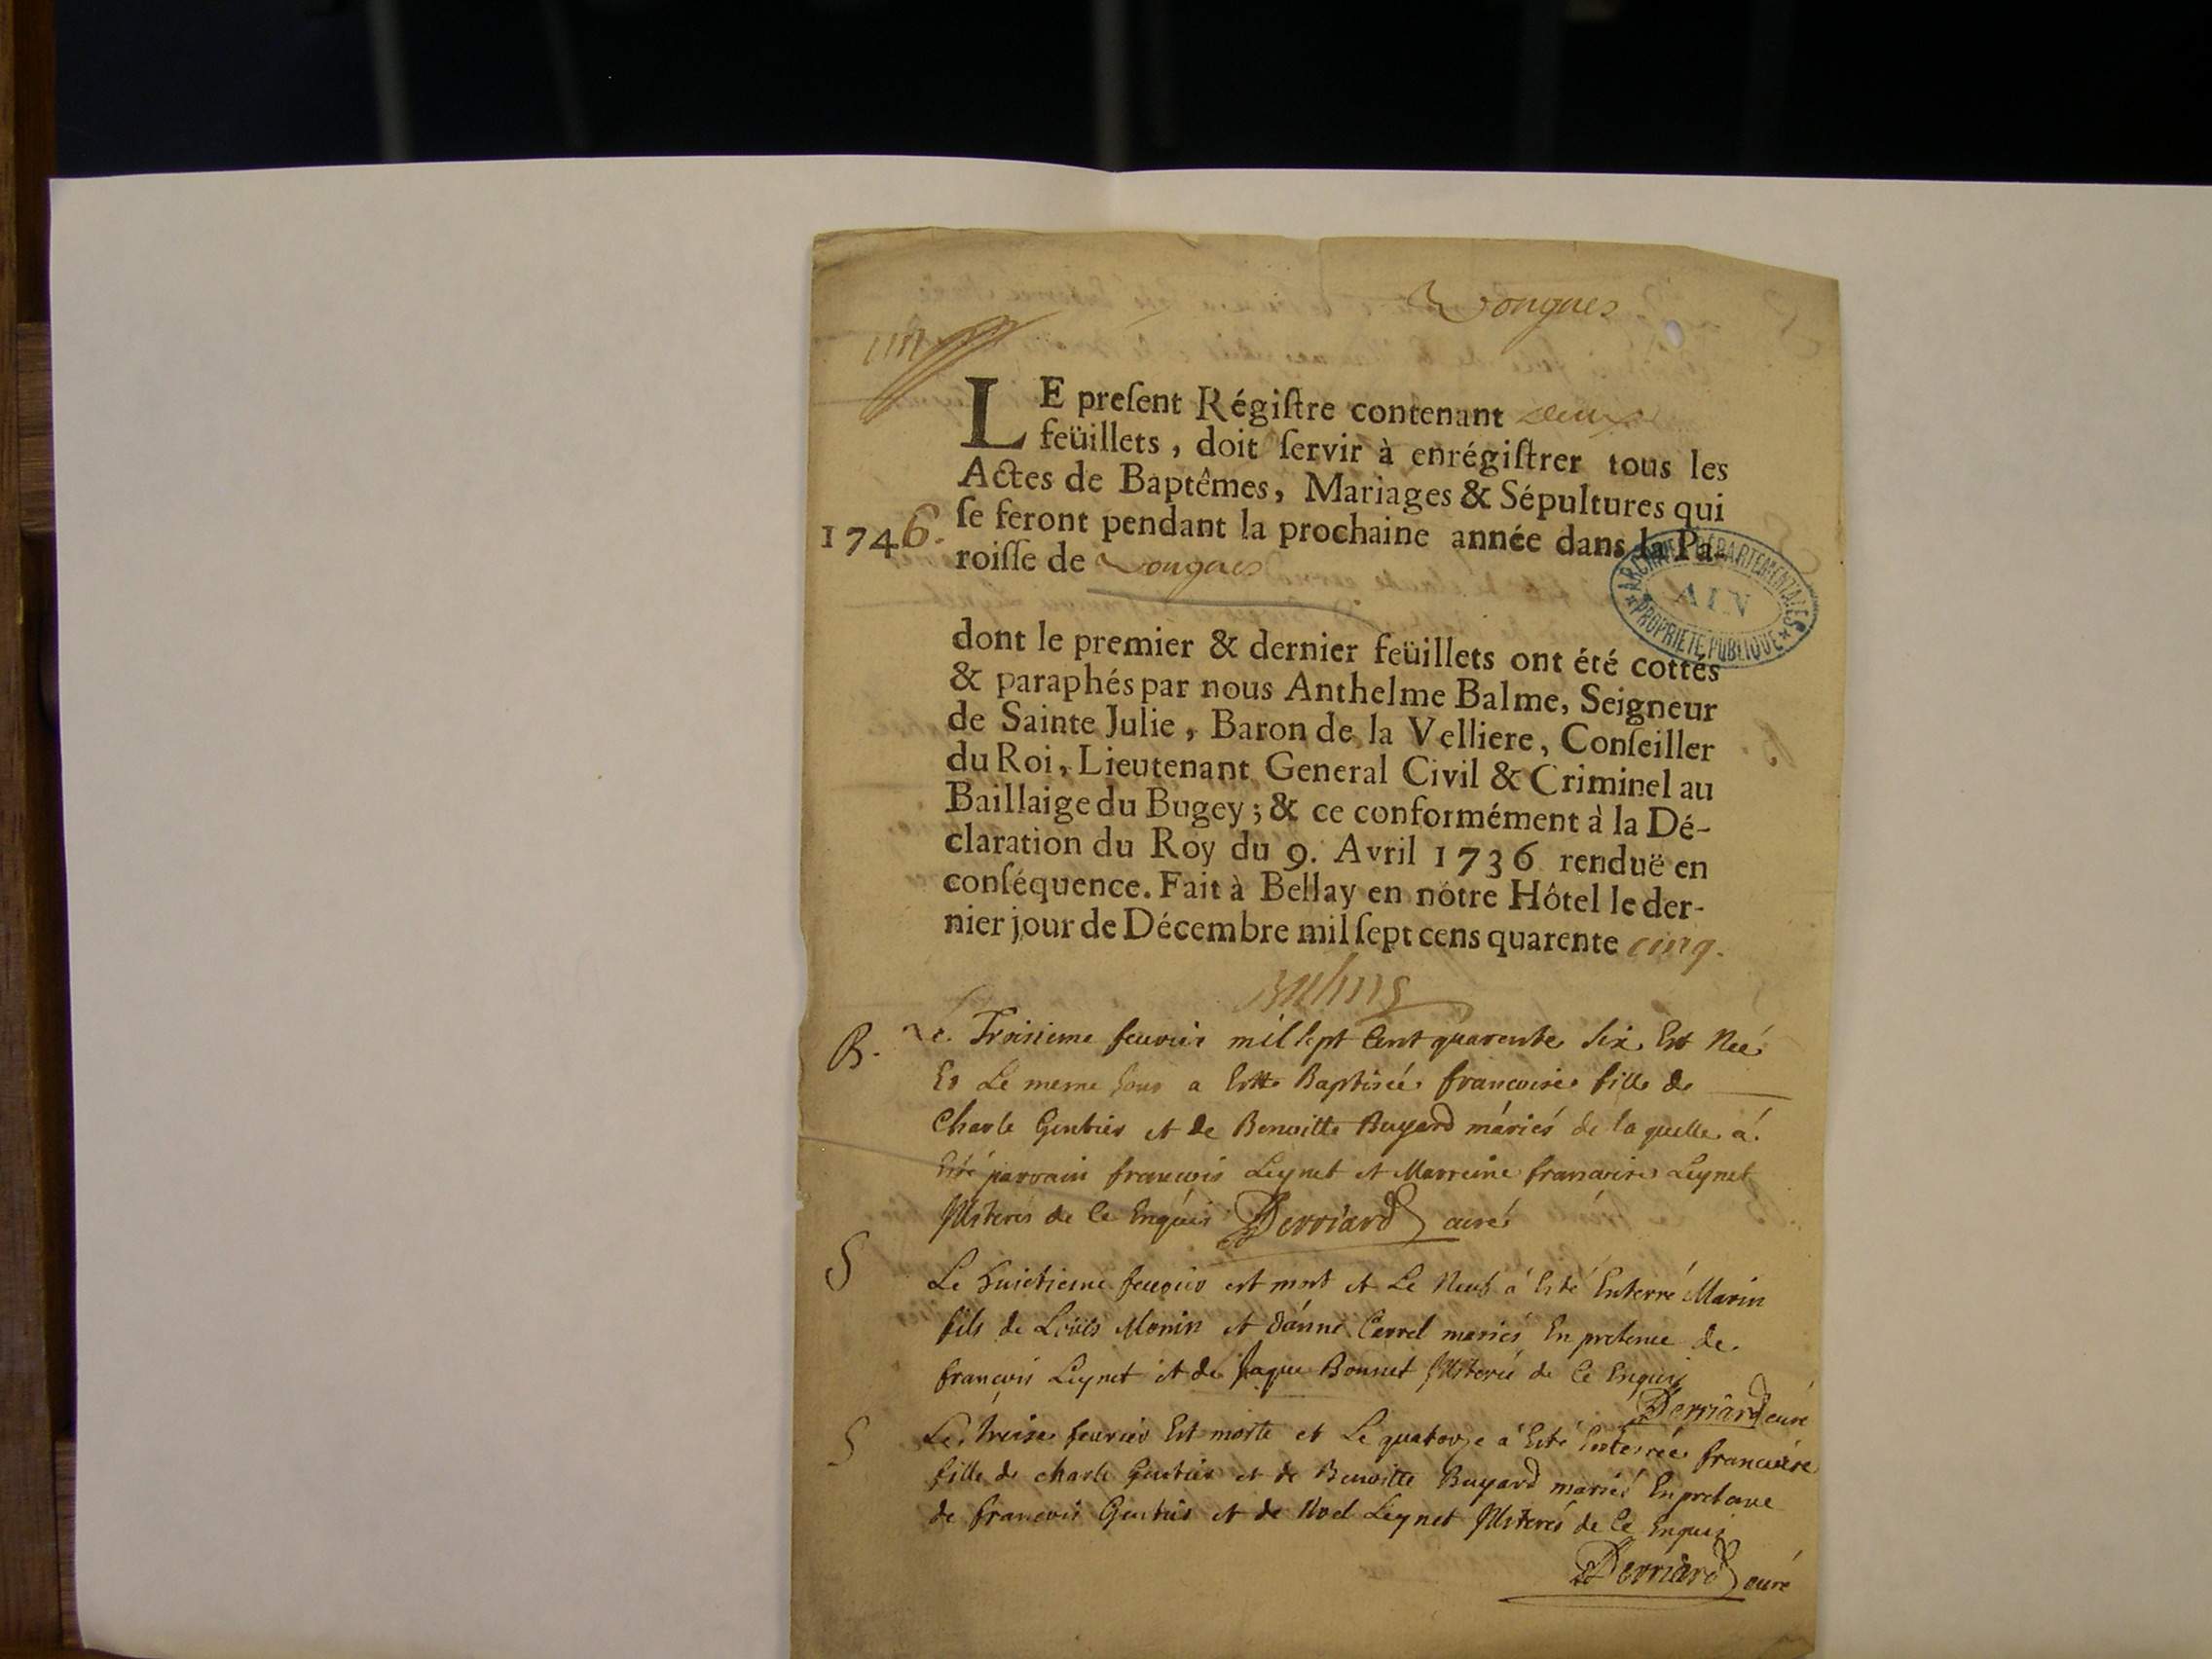 Vongnes
LE preſent Régiſtre contenant deux
feüillets, doit ſervir à enrégiſtrer tous les
Actes de Baptêmes, Mariages & Sépultures qui
1746. ſe feront pendant la prochaine année dans la Pa-
roiſſe de Vongnes
ARCHIVES DÉPARTEMENTALES
AIN
PROPRIÉTÉ PUBLIQUE
dont le premier & dernier feüillets ont été cottés
& paraphés par nous Anthelme Balme, Seigneur
de Sainte Julie, Baron de la Velliere, Conſeiller
du Roi, Lieutenant General Civil & Criminel au
Baillaige du Bugey; & ce conformément à la Dé-
claration du Roy du 9. Avril 1736 renduë en
conſéquence. Fait à Bellay en nôtre Hôtel le der-
nier jour de Décembre mil ſept cens quarente cinq.
Balme
B. Le Troisieme feuvrier mil sept Cent quarente six Est Neé
Et Le meme Jour a Esté Baptiseé francoise fille de
Charle Gentier et de Benoitte Bugard mariés de la quelle a
Esté parrain francois Leynet et Marreine francoise Leynet
Illiterés de Ce Enquis Derriard curé
S Le huictieme feuvrier est mort et Le Neuf a Esté Enterré Marin
fils de Loüis Monin et d'anne Carrel mariés En presence de
francois Leynet et de Jaque Bonnet Illiterés de Ce Enquis
Derriard curé
S Le treise feuvrier Est morte et Le quatorze a Esté Enterreé francoise
fille de charle Gentier et de Benoitte Bugard mariés En presence
de francois Gentier et de Noel Leynet Illiterés de Ce Enquis
Derriard curé